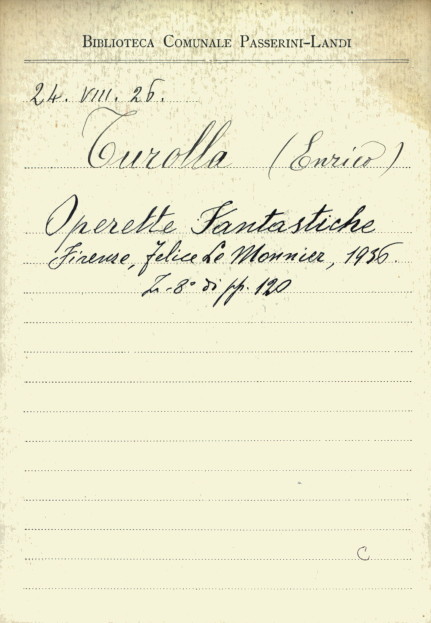 BIBLIOTECA COMUNALE PASSERINI-LANDI
24. VIII. 26.
Turolla (Enrico)
Operette Fantastiche
Firenze, Felice Le Monnier, 1956.
In-8° di pp. 120
C